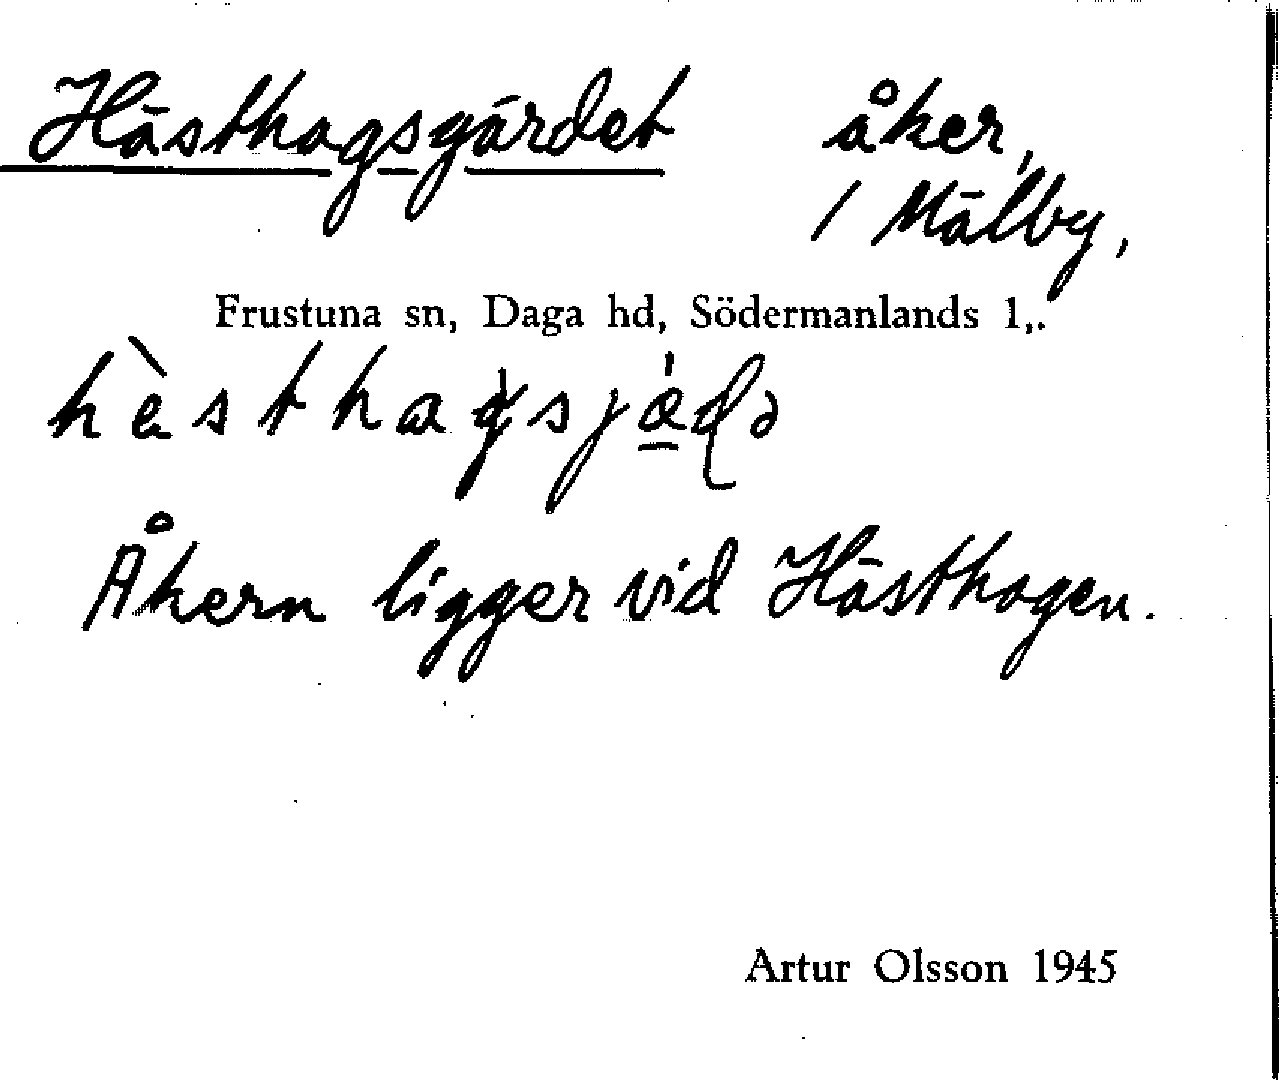 Hästhagsgärdet åker,
i Mälby,
Frustuna sn, Daga hd, Södermanlands l.
Åkern ligger vid Hästhagen.
Artur Olsson 1945